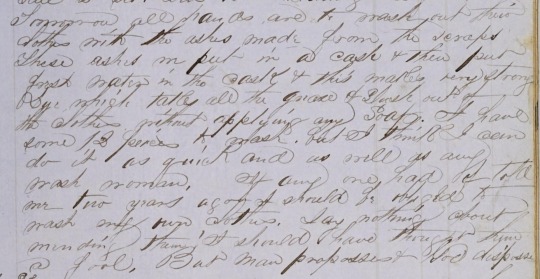 Tomorrow all hands are to wash out their
clothes with the ashes made from the scraps
these ashes are put in a cask & then put
fresh water in the cask & this makes very strong
Lye which takes all the grease & out of
the clothes without applying any Soap. I have
some 12 pieces to wash. but I think I can
do it as quick and as well as any
wash woman. If any one had of told
me two years agone I should be obliged to
wash my own clothes. Say nothing about
mending them, I should have thought them
a fool. But man proposes & God disposes